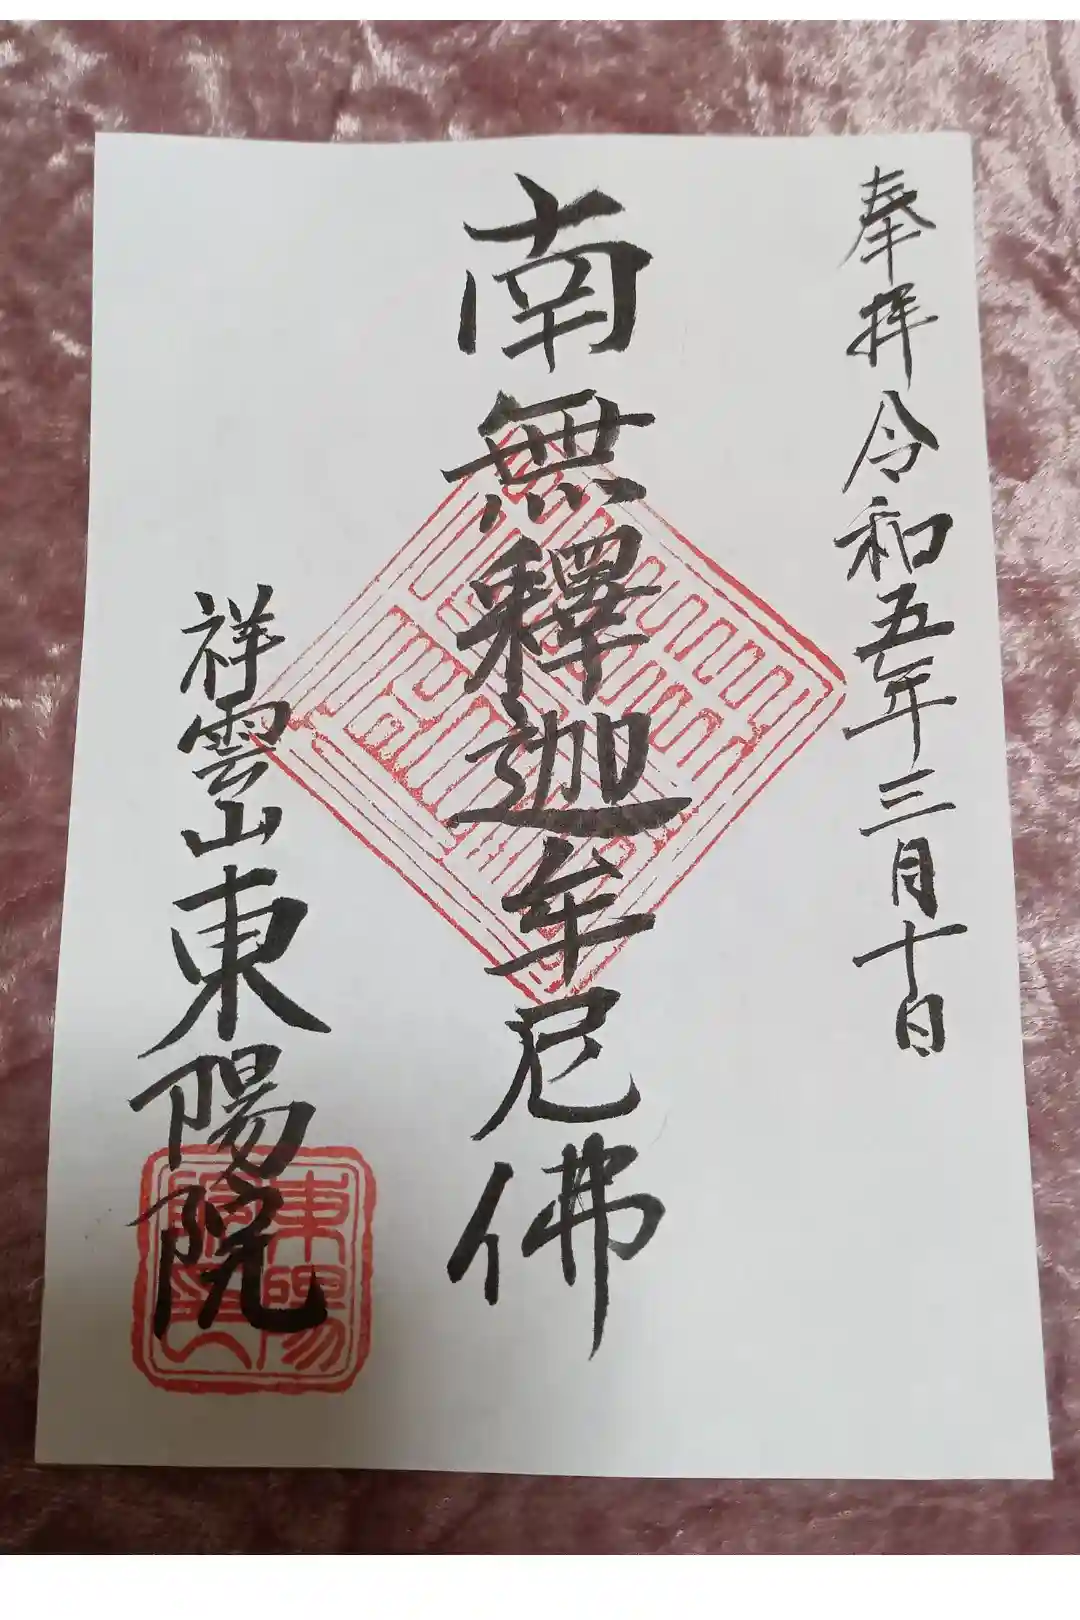 奉拝令和五年三月十日
南無釋迦牟尼佛
祥雲山東陽院
東陽